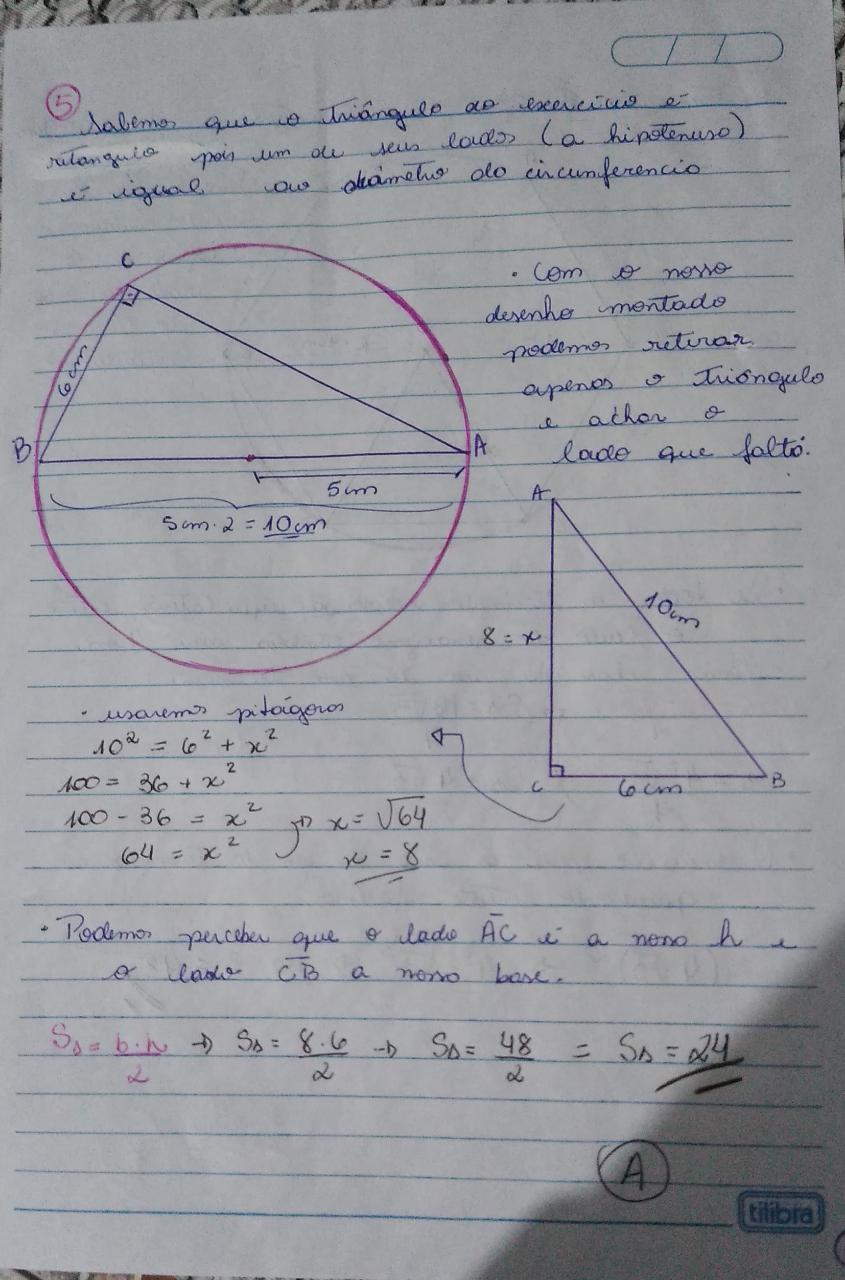 5
Sabemos que o triângulo do exercício é
retangulo pois um de seus lados (a hipotenusa)
é igual ao diâmetro da circunferencia
C
6cm
B
A
5cm
5cm·2 = 10cm
· Com o nosso
desenho montado
podemos retirar
apenas o triângulo
e achar o
lado que falta.
A
10cm
8 = x
C
6cm
B
· usaremos pitágoras
10² = 6² + x²
100 = 36 + x²
100 - 36 = x²
64 = x²
x = √64
x = 8
· Podemos perceber que o lado A̅C̅ é a nosso h e
o lado C̅B̅ a nosso base.
S∆ = b·h/2 → S∆ = 8·6/2 → S∆ = 48/2 = S∆ = 24
A
tilibra